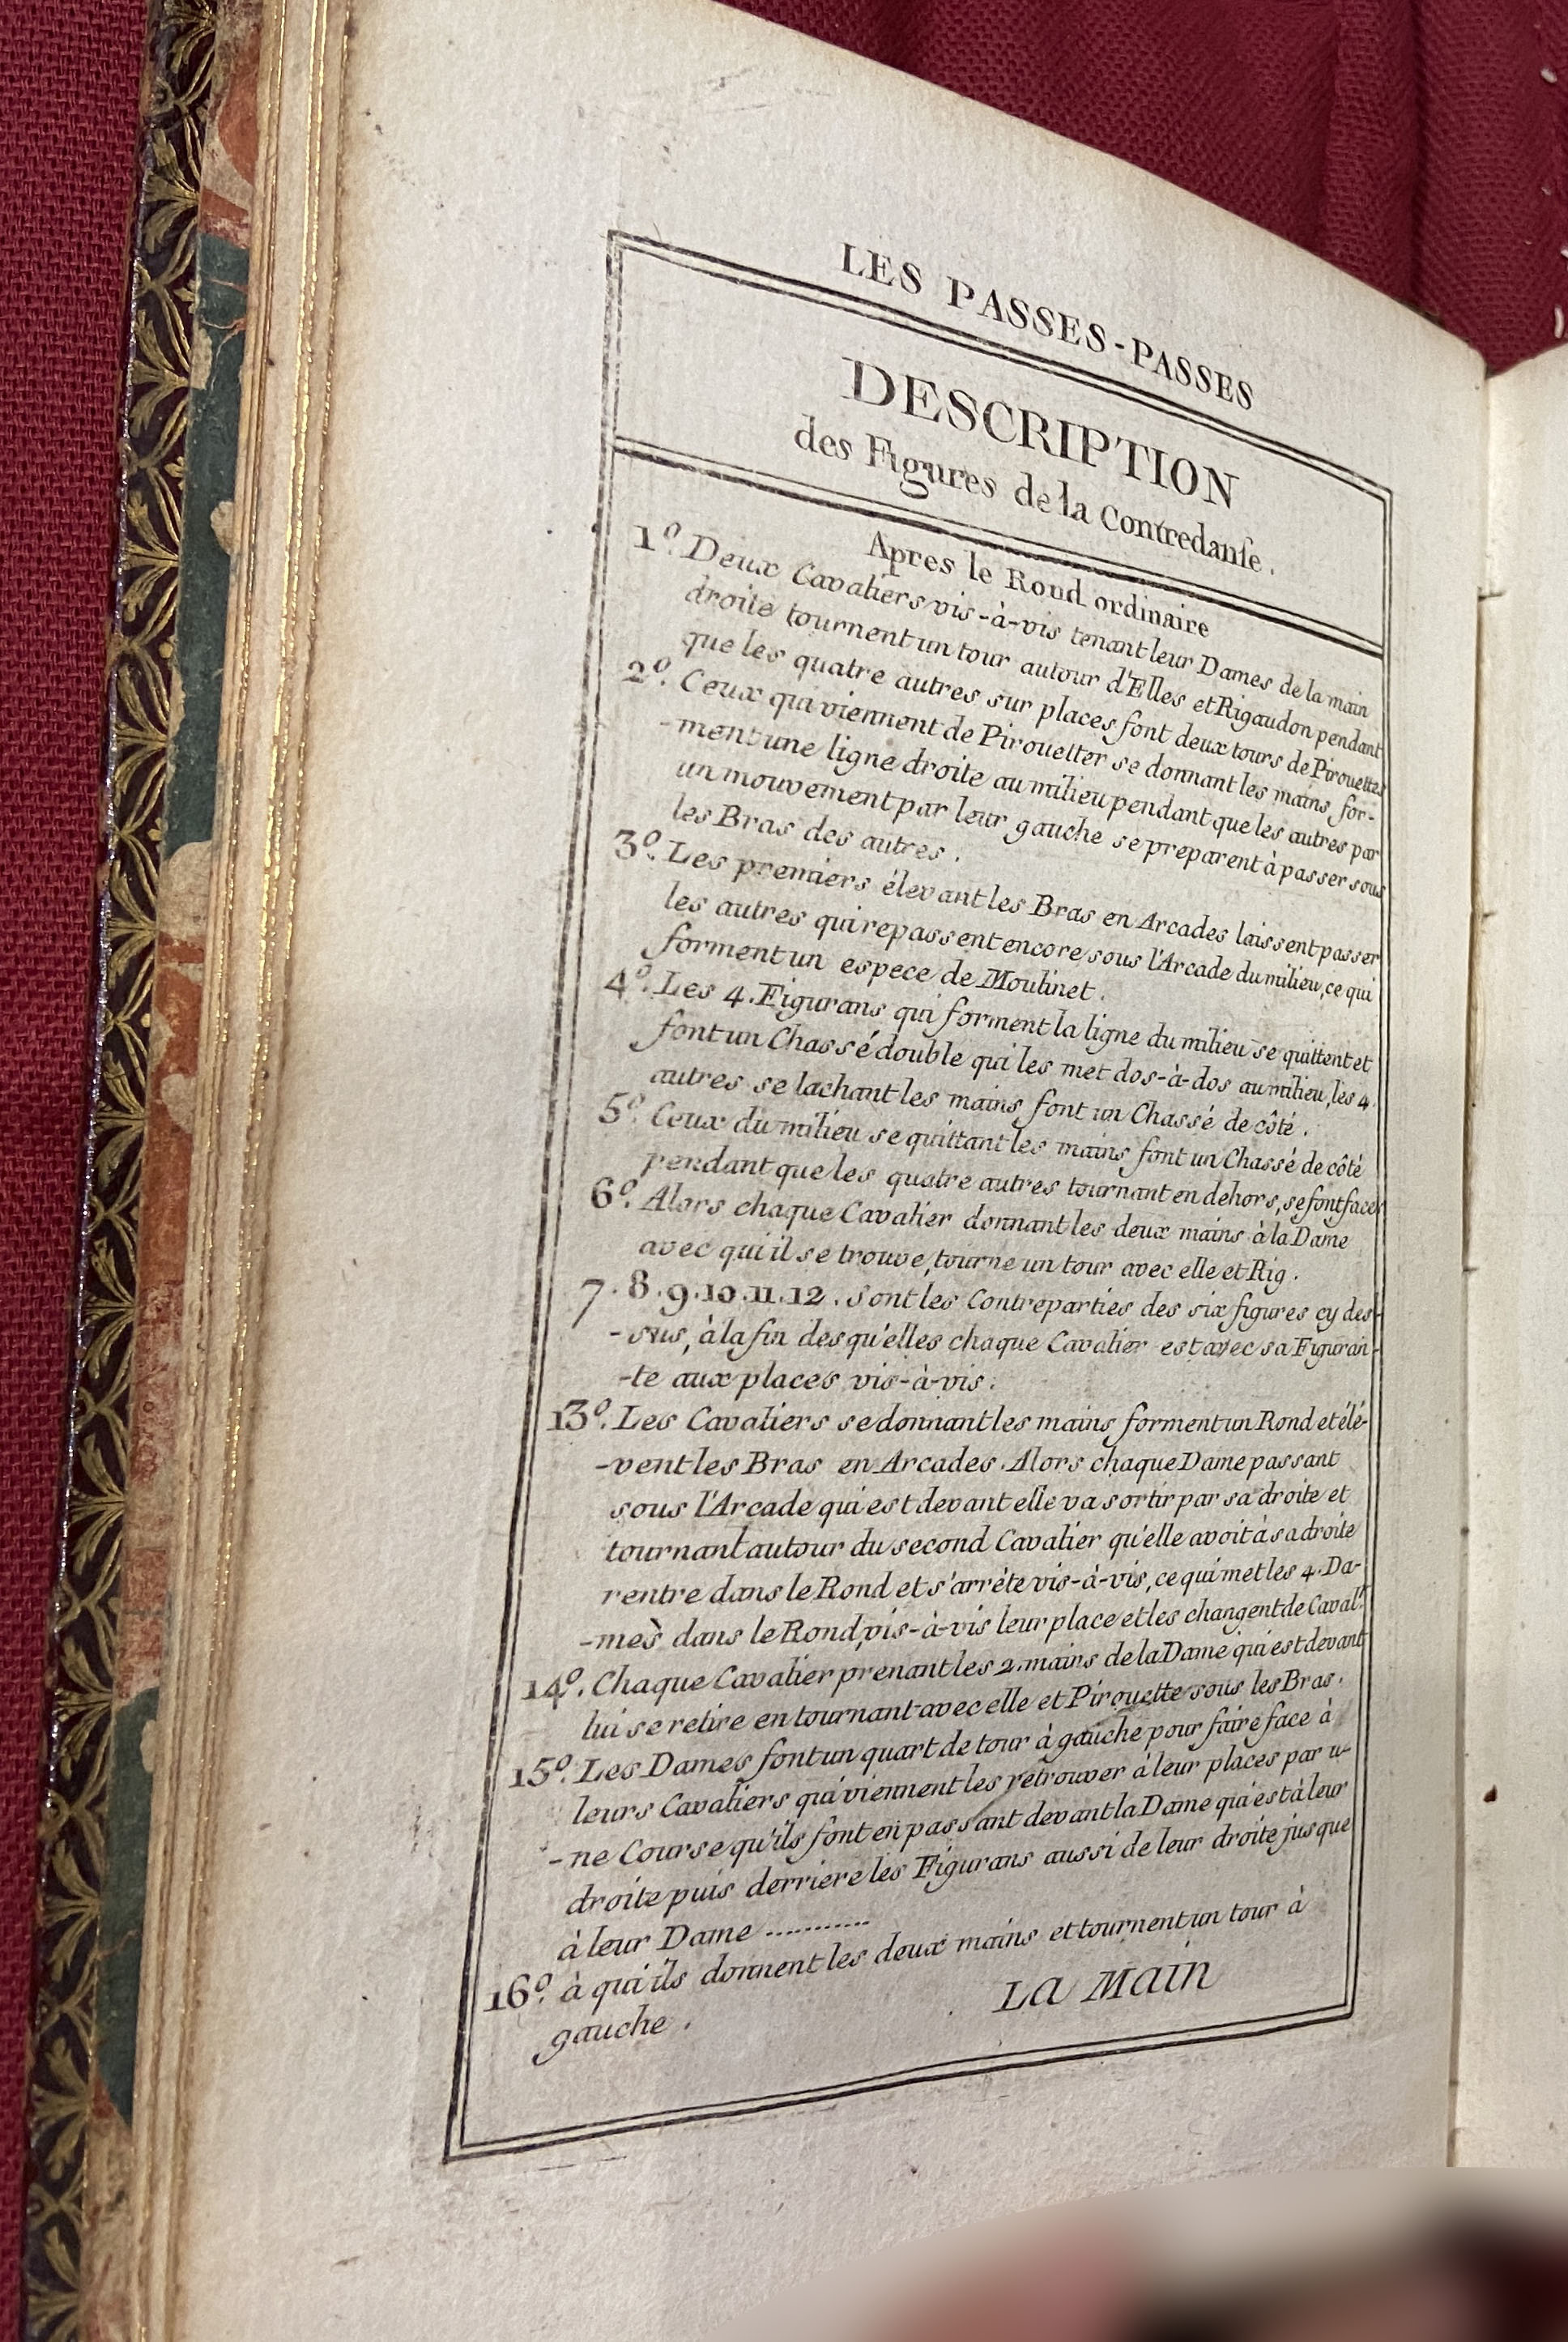 LES PASSES-PASSES
DESCRIPTION
des Figures de la Contredanſe.
Apres le Rond ordinaire
1º. Deux Cavaliers vis-à-vis tenant leur Dames de la main
droite tournent un tour autour d'Elles et Rigaudon pendant
que les quatre autres sur places font deux tours de Pirouettes
2º. Ceux qui viennent de Pirouetter se donnant les mains for-
-ment une ligne droite au milieu pendant que les autres par
un mouvement par leur gauche se preparent à passer sous
les Bras des autres.
3º. Les premiers élevant les Bras en Arcades laissent passer
les autres qui repassent encore sous l'Arcade du milieu, ce qui
forment un espece de Moulinet.
4º. Les 4. Figurans qui forment la ligne du milieu se quittent et
font un Chassé double qui les met dos-à-dos au milieu, les 4.
autres se lachant les mains font un Chassé de côté.
5º. Ceux du milieu se quittant les mains font un Chassé de côté
pendant que les quatre autres tournant en dehors, se font faces
6º. Alors chaque Cavalier donnant les deux mains à la Dame
avec qui il se trouve, tourne un tour avec elle et Rig.
7. 8. 9. 10. 11. 12. sont les Contreparties des six figures cy des-
-sus, à la fin des qu'elles chaque Cavalier est avec sa Figuran-
-te aux places vis-à-vis.
13º. Les Cavaliers se donnant les mains forment un Rond et élé-
-vent les Bras en Arcades. Alors chaque Dame passant
sous l'Arcade qui est devant elle va sortir par sa droite et
tournant autour du second Cavalier qu'elle avoit à sa droite
rentre dans le Rond et s'arrête vis-à-vis, ce qui met les 4. Da-
-mès dans le Rond, vis-à-vis leur place et les changent de Caval.rs
14º. Chaque Cavalier prenant les 2. mains de la Dame qui est devant
lui se retire en tournant avec elle et Pirouette sous les Bras.
15º. Les Dames font un quart de tour à gauche pour faire face à
leurs Cavaliers qui viennent les retrouver à leur places par u-
-ne Course qu'ils font en passant devant la Dame qui est à leur
droite puis derriere les Figurans aussi de leur droite jusque
à leur Dame ...........
16º. à qui ils donnent les deux mains et tournent un tour à
gauche.
La Main